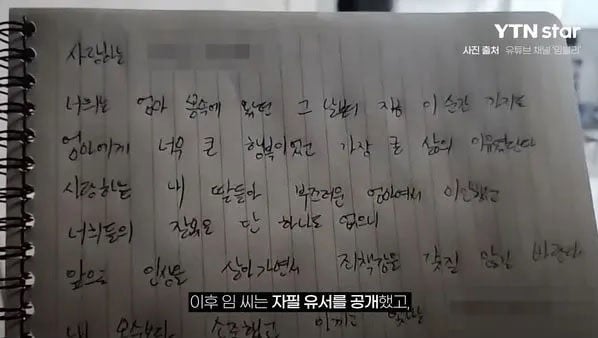 YTN star
사진 출처 유튜브 채널 '임블리'
사랑하는
너희는 엄마 뱃속에 왔던 그 날부터 지금 이 순간 까지도
엄마에게 너무 큰 행복이었고 가장 큰 삶의 이유였단다
사랑하는 내 딸들아 부끄러운 엄마여서 미안했고
너희들의 잘못은 단 하나도 없으니
앞으로 인생을 살아가면서 죄책감을 갖질 않길 바란다
이후 임 씨는 자필 유서를 공개했고,
내 소중했고